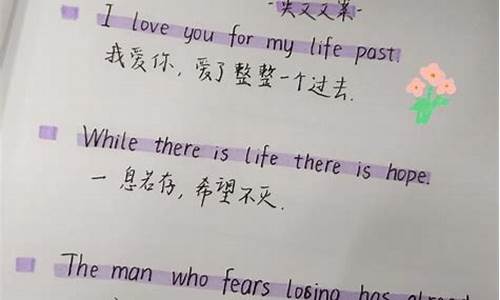 I love you for my life past.
我爱你，爱了整整一个过去.
While there is life there is hope.
一息若存，希望不灭.
The man who fears losing has already